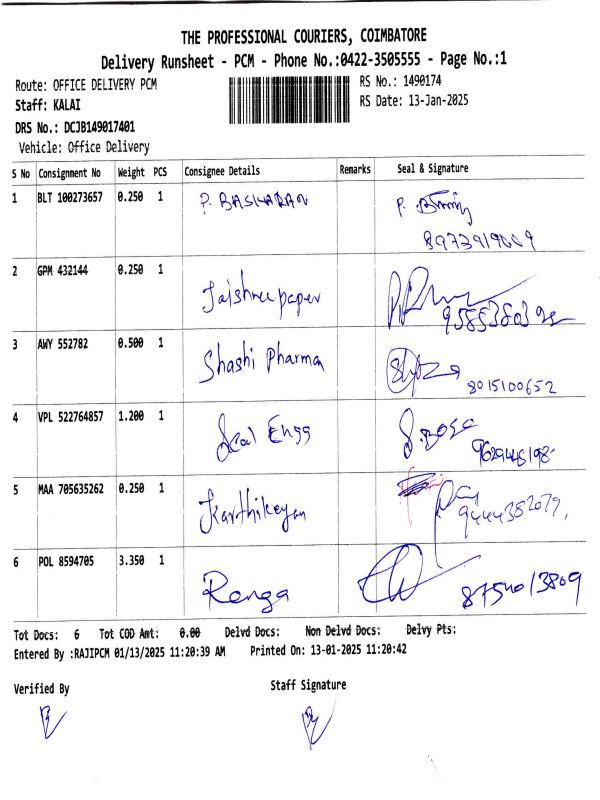 THE PROFESSIONAL COURIERS, COIMBATORE
Delivery Runsheet - PCM - Phone No.:0422-3505555 - Page No.:1
Route: OFFICE DELIVERY PCM
RS No.: 1490174
Staff: KALAI
RS Date: 13-Jan-2025
DRS No.: DCJB149017401
Vehicle: Office Delivery
S No Consignment No Weight PCS Consignee Details Remarks Seal & Signature
1 BLT 100273657 0.250 1 P. BASKARAN P.
8973919009
2 GPM 432144 0.250 1 Jaishree paper
3 AWY 552782 0.500 1 Shashi Pharma
8015100652
4 VPL 522764857 1.200 1 Seal Engg S. Bose
5 MAA 705635262 0.250 1 Karthikeyan
9444382079.
6 POL 8594705 3.350 1 Renga 8754013809
Tot Docs: 6 Tot COD Amt: 0.00 Delvd Docs: Non Delvd Docs: Delvy Pts:
Entered By :RAJIPCM 01/13/2025 11:20:39 AM Printed On: 13-01-2025 11:20:42
Verified By Staff Signature